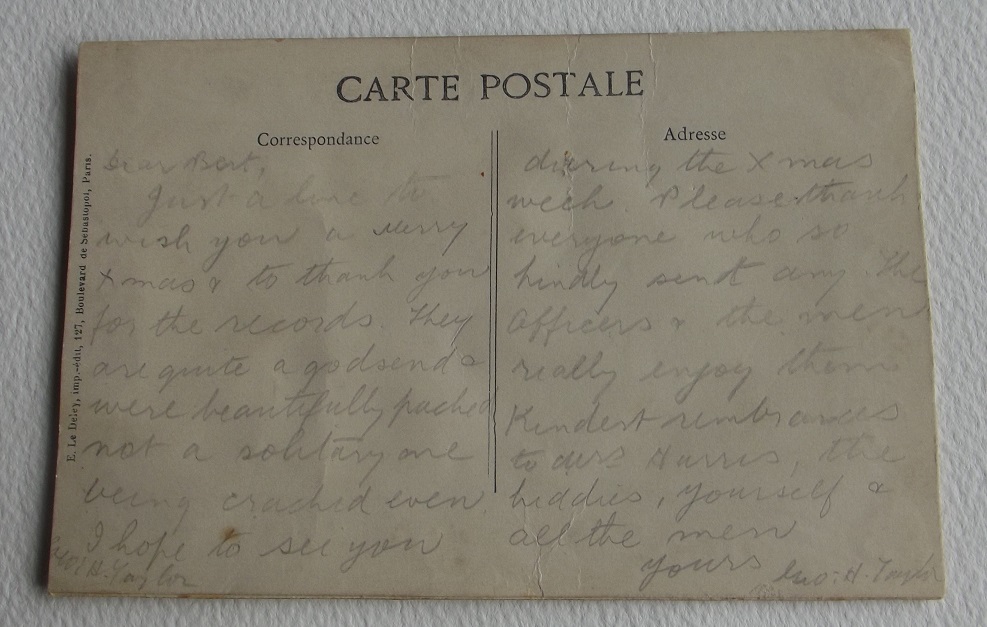 CARTE POSTALE
Correspondance
Adresse
E. Le Deley, imp.-édit, 127, Boulevard de Sébastopol, Paris.
Dear Bert,
Just a line to
wish you a Merry
Xmas & to thank you
for the records. They
are quite a godsend &
were beautifully packed
not a solitary one
being cracked even.
I hope to see you
Geo: H. Taylor
during the Xmas
week. Please thank
everyone who so
kindly sent any. The
Officers & the men
really enjoy them
Kindest rembrances
to Mrs Harris, the
kiddies, yourself &
all the men
yours
Geo: H. Taylor